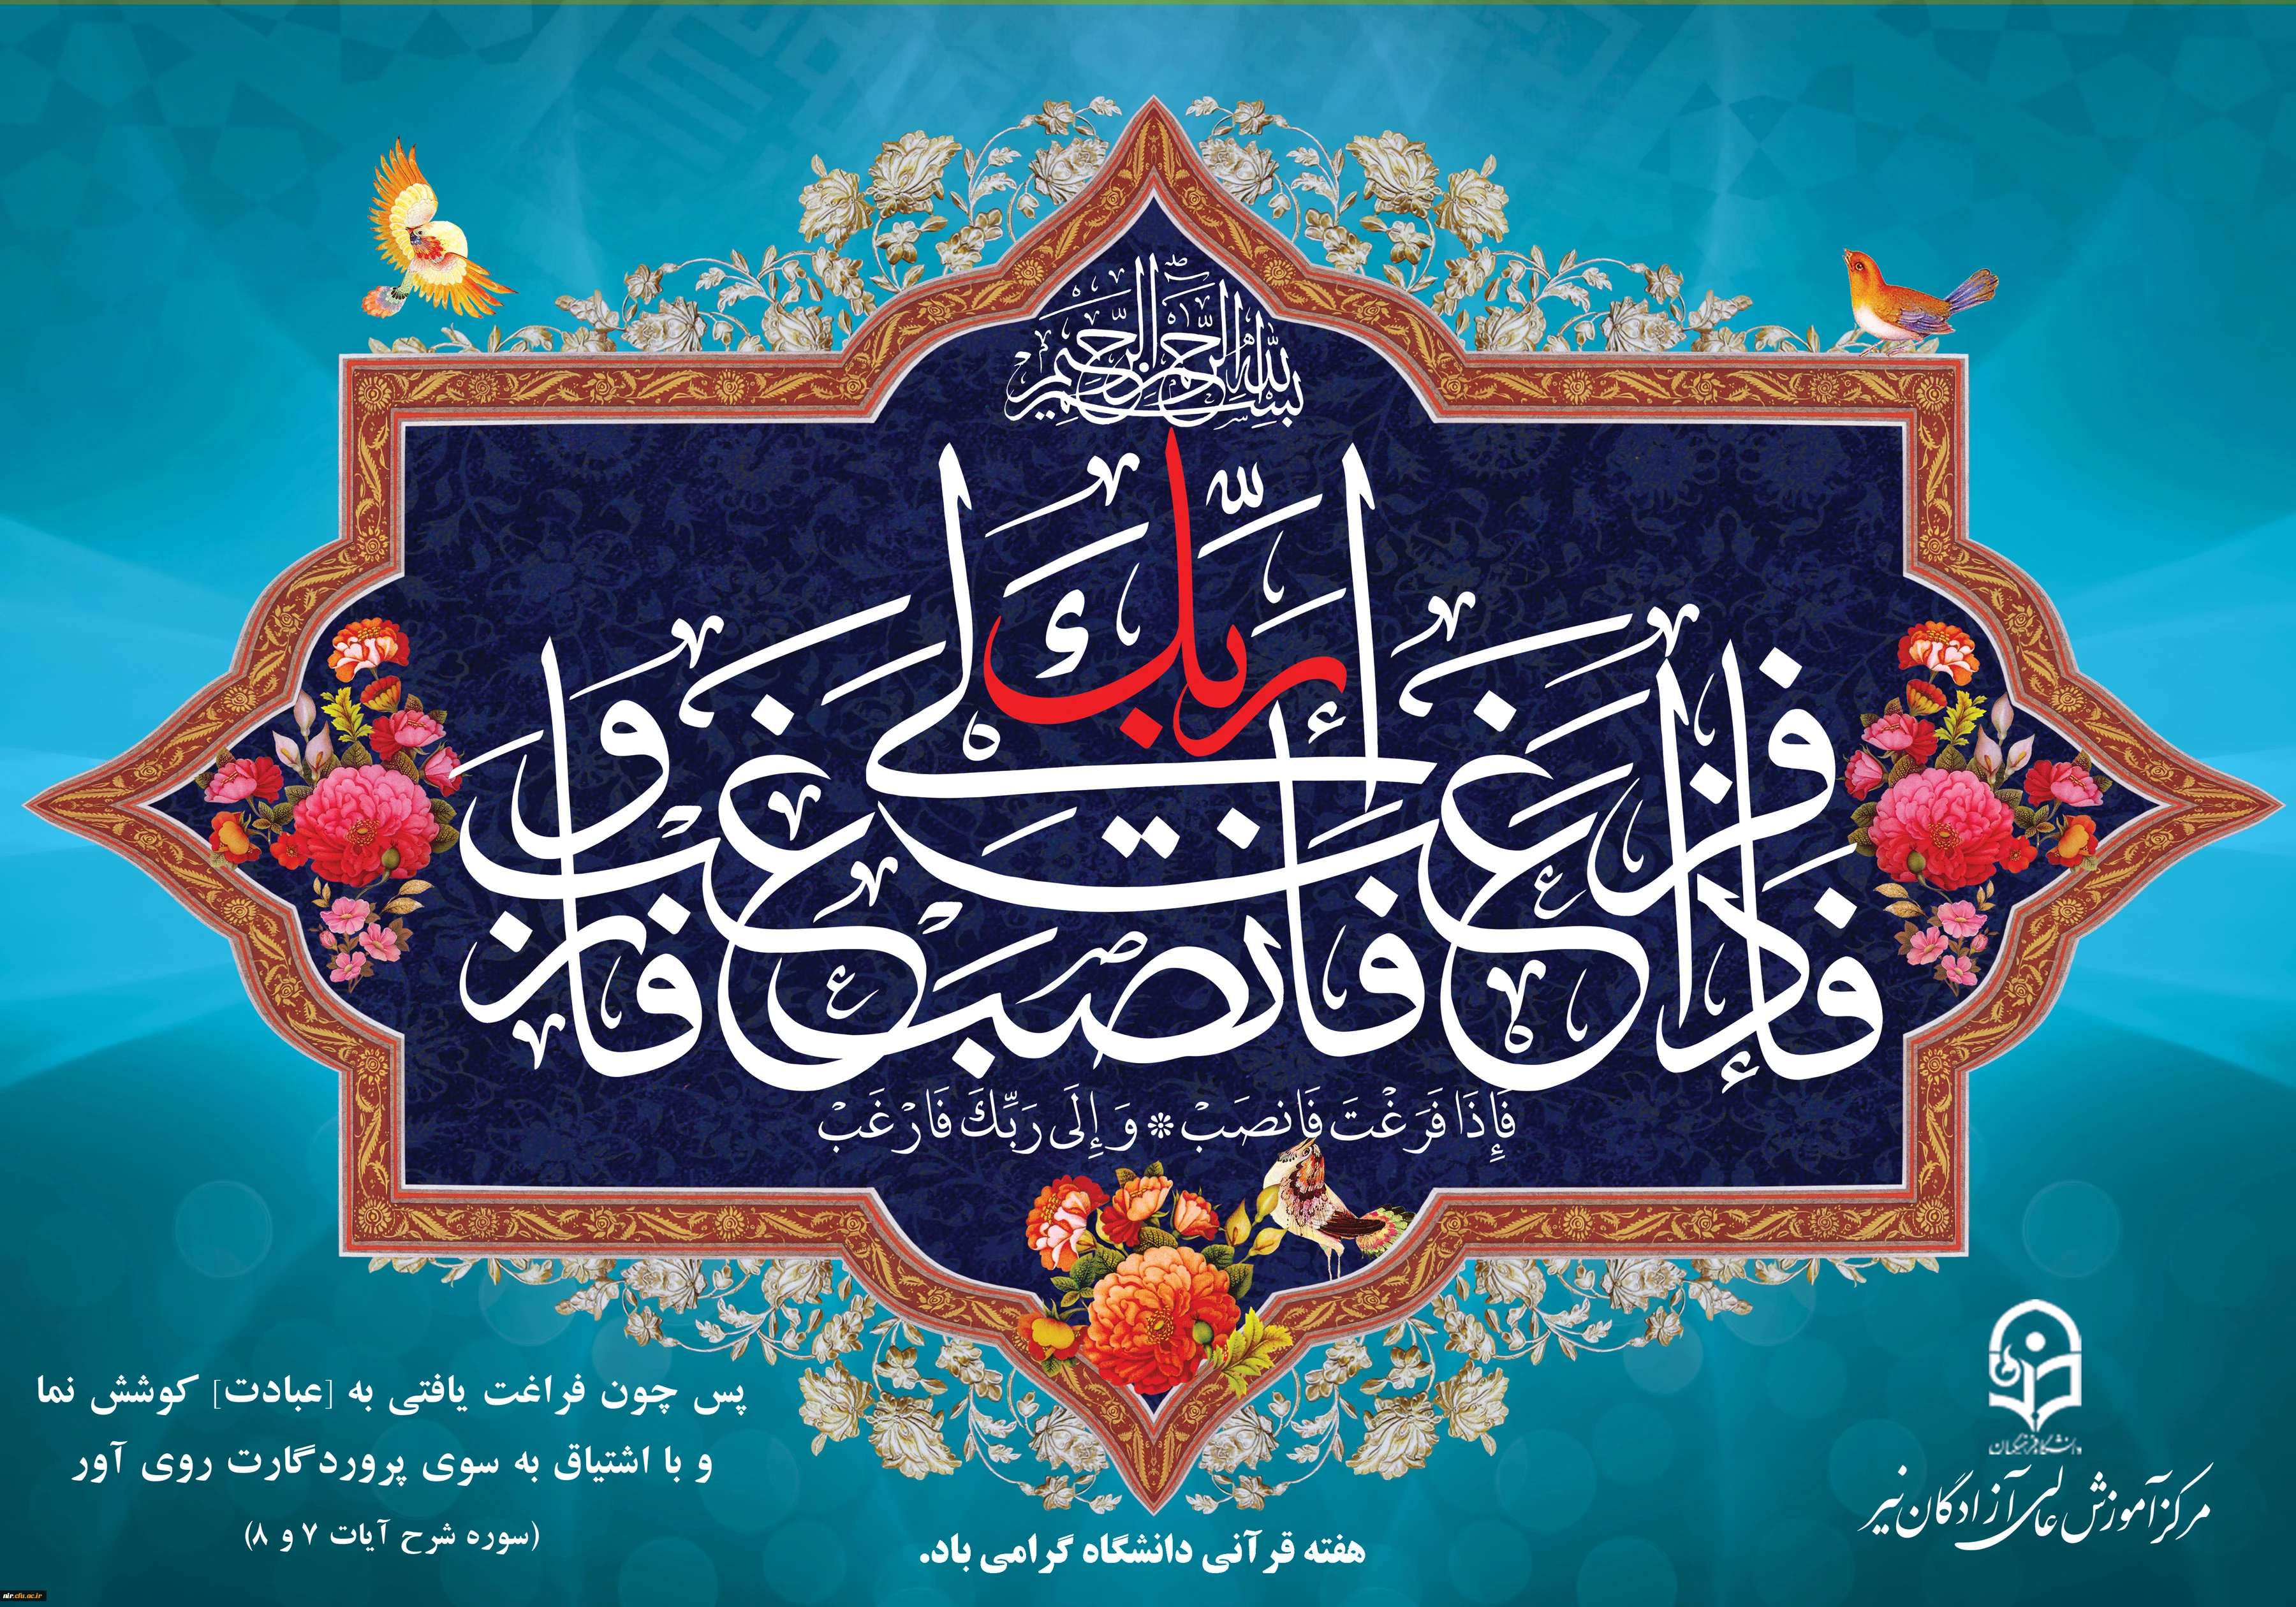 بسم الله الرحمن الرحیم
فإذا فرغت فانصب وإلی ربك فارغب
فَإِذَا فَرَغْتَ فَانصَبْ * وَ إِلَى رَبِّكَ فَارْغَبْ
پس چون فراغت یافتی به [عبادت] کوشش نما
و با اشتیاق به سوی پروردگارت روی آور
(سوره شرح آیات ۷ و ۸)
هفته قرآنی دانشگاه گرامی باد.
دانشگاه فرهنگیان
مرکز آموزش عالی آزادگان نیر
nir.cfu.ac.ir